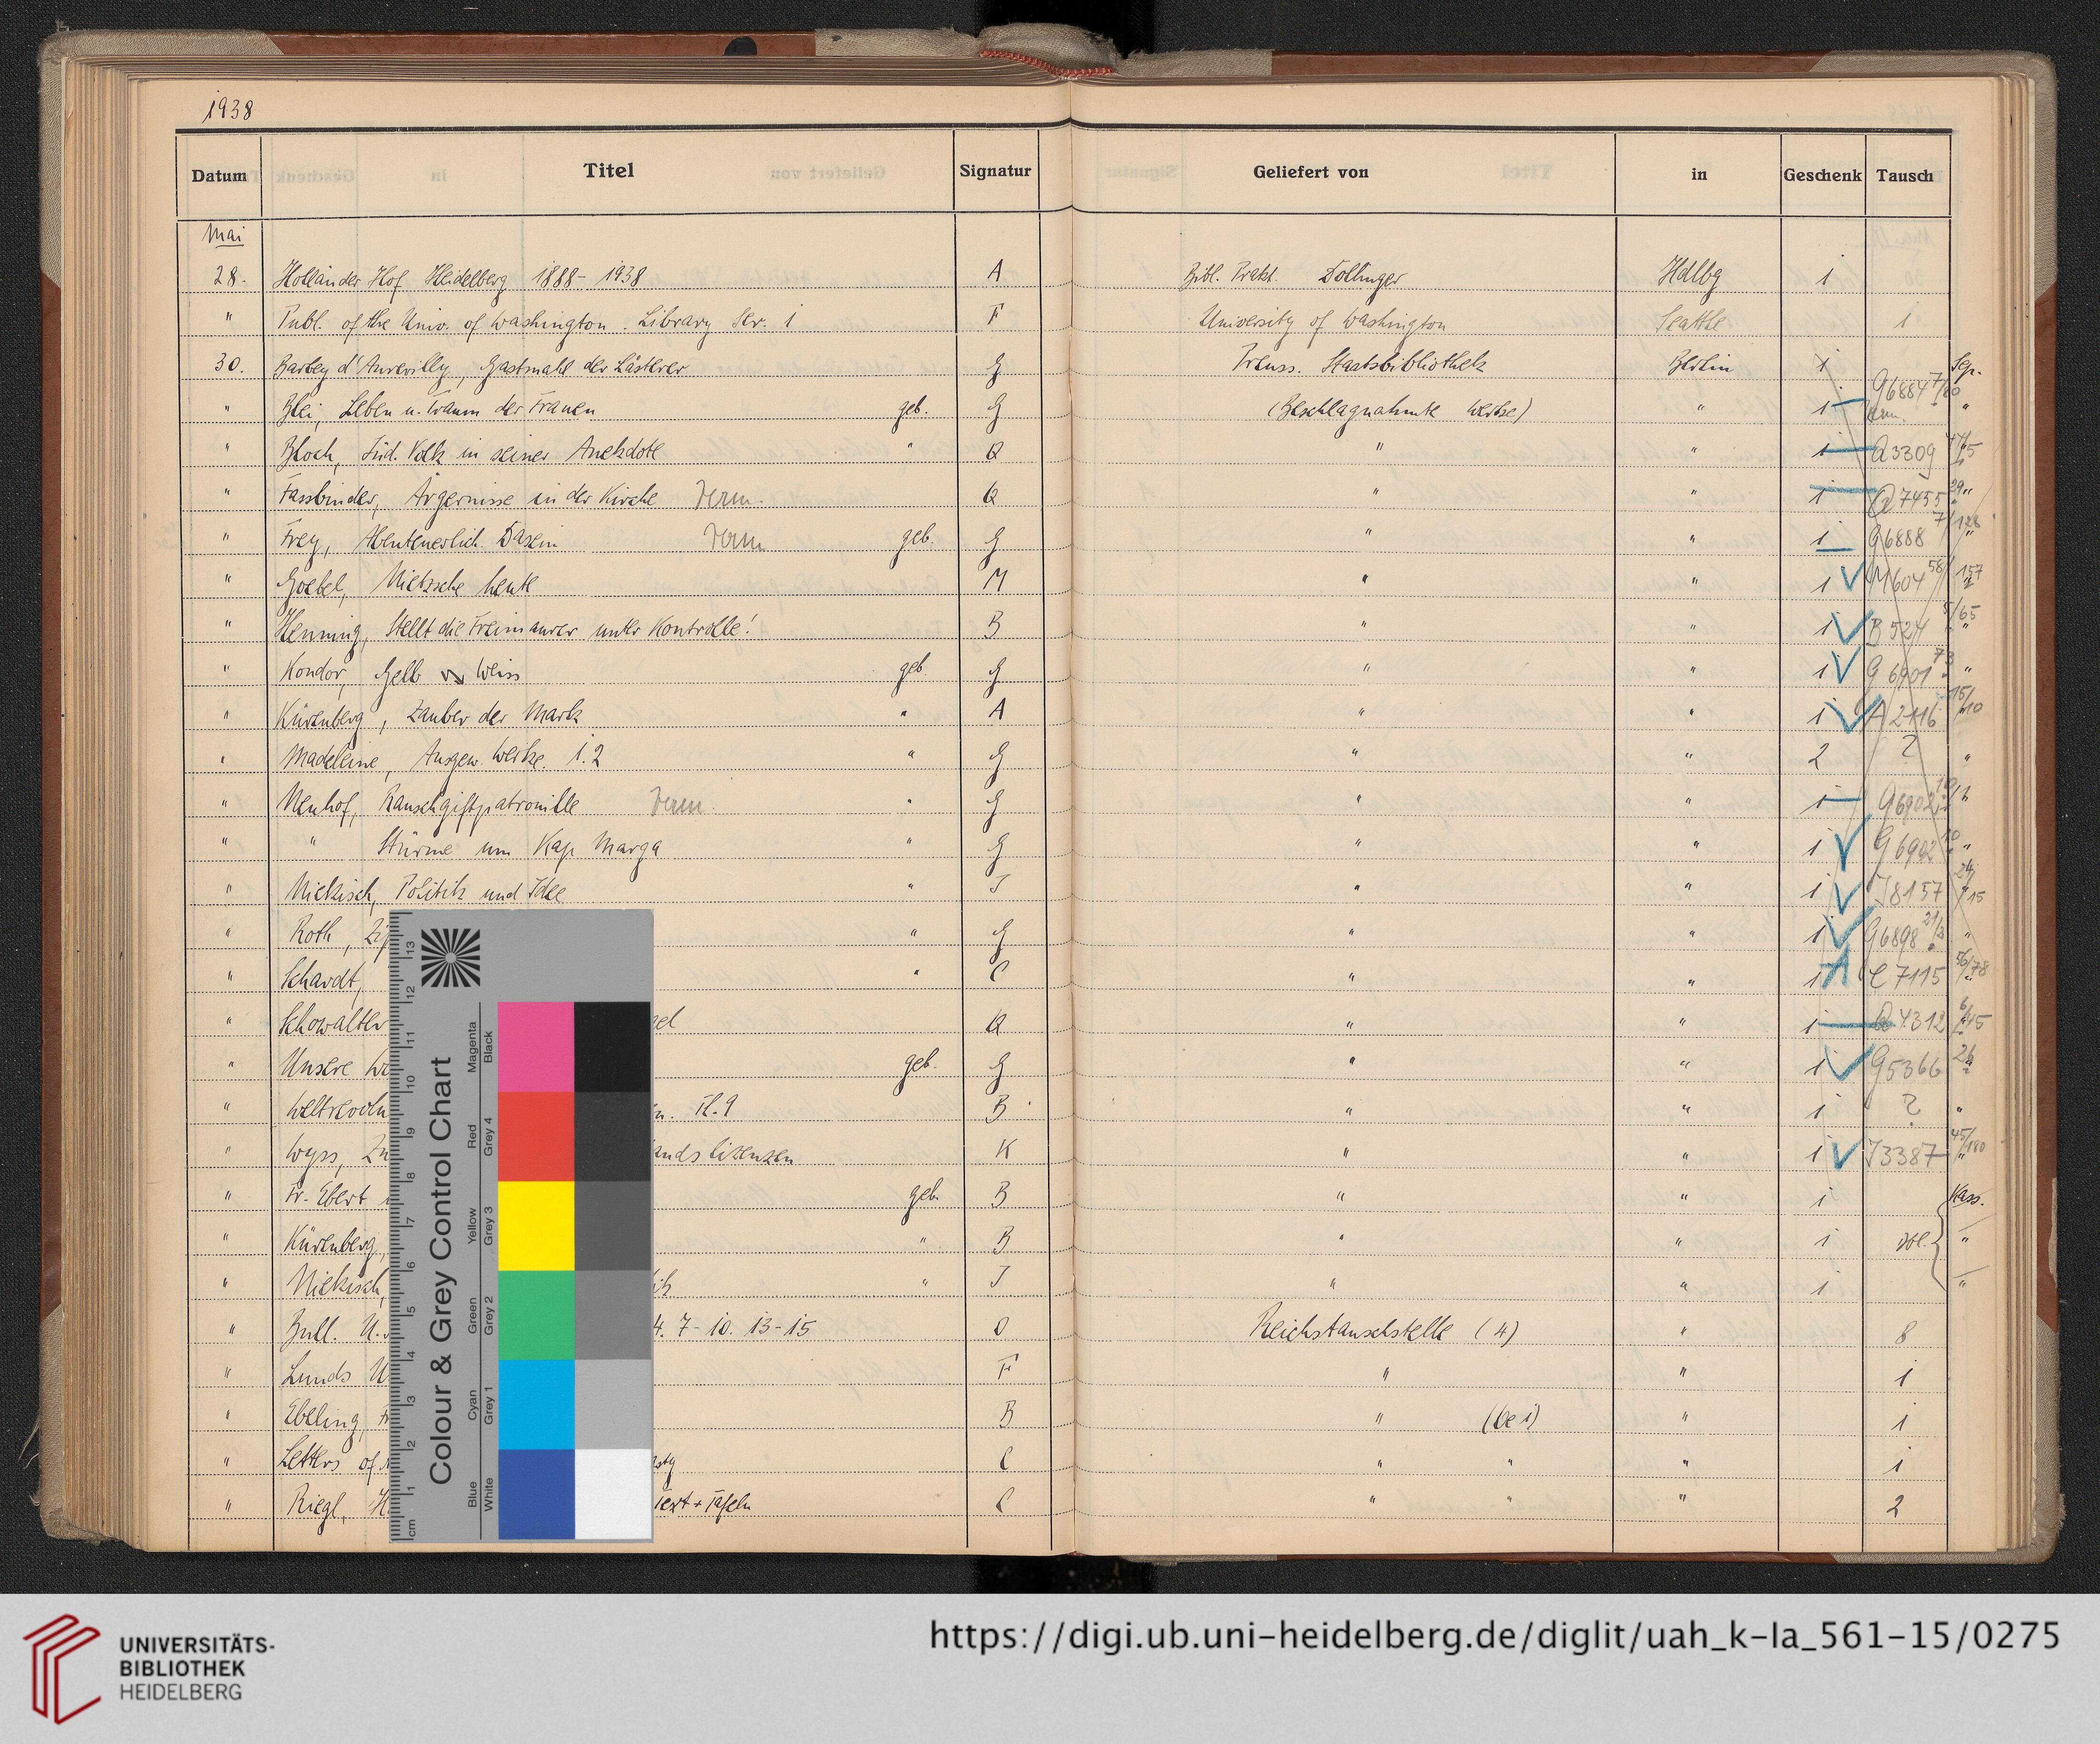 1938
Datum Titel Signatur Geliefert von in Geschenk Tausch
Mai
28. Holländer Hof Heidelberg 1888-1938 A Bibl. Prakt. Dollinger Hdlbg 1
" Publ. of the Univ. of Washington. Library Ser. 1 F University of Washington Seattle 1
30. Barbey d'Aurevilly, Gastmahl der Lästerer G Preuss. Staatsbibliothek Berlin 1 Sep.
" Blei, Leben u. Traum der Frauen geb. G (Beschlagnahmte Werke) " 1 G6884 7/80 "
" Bloch, Jüd. Volk in seiner Anekdote " Q " " 1 Q3309
" Fassbinder, Ärgernisse in der Kirche Verm. Q " " 1 Q7455 29 "
" Frey, Abenteuerlich. Dasein Verm geb. G " " 1 G6888 7/128 "
" Goebel, Nietzsche heute M " " 1 M604 58/157 "
" Henning, Stellt die Freimaurer unter Kontrolle! B " " 1 B 524 5/65 "
" Kondor, Gelb Weiss geb G " " 1 G 6901 73 "
" Kürenberg, Zauber der Mark " A " " 1 A 2116 15/10 "
" Madeleine, Ausgew. Werke. 1.2 " G " " 2 ? "
" Neuhof, Rauschgiftpatrouille Verm. " G " " 1 G6902 10/2
" " Stürme um Kap Marga " G " " 1 G6902 10 "
" Niekisch, Politik und Idee " J " " 1 J8157 24/15
" Roth, " G " " 1 G6898 21/3 "
" Schardt, " C " " 1 C 7115 56/78
" Schowalter Q " " 1 Q 4312 6/45
" Unsere geb. G " " 1 G5366 26 "
" Weltrevolu Tl. 9 B " " 1 ? "
" Wyss, andslizenzen K " " 1 J3387 45/180 "
" Fr. Ebert geb. B " " 1 Kass.
" Kürenberg, " B " " 1 "
" Niekisch, " J " " 1 "
" Bull. U. 4. 7-10. 13-15 O Reichstauschstelle (4) " 8
" Lunds U F " " 1
" Ebeling, B " (bei) " 1
" Letters of C " " " 1
" Riegl, Text + Tafeln C " " " 2
cm 1 2 3 4 5 6 7 8 9 10 11 12 13
Colour & Grey Control Chart
Blue Cyan Green Yellow Red Magenta
White Grey 1 Grey 2 Grey 3 Grey 4 Black
UNIVERSITÄTS-
BIBLIOTHEK
HEIDELBERG
https://digi.ub.uni-heidelberg.de/diglit/uah_k-Ia_561-15/0275